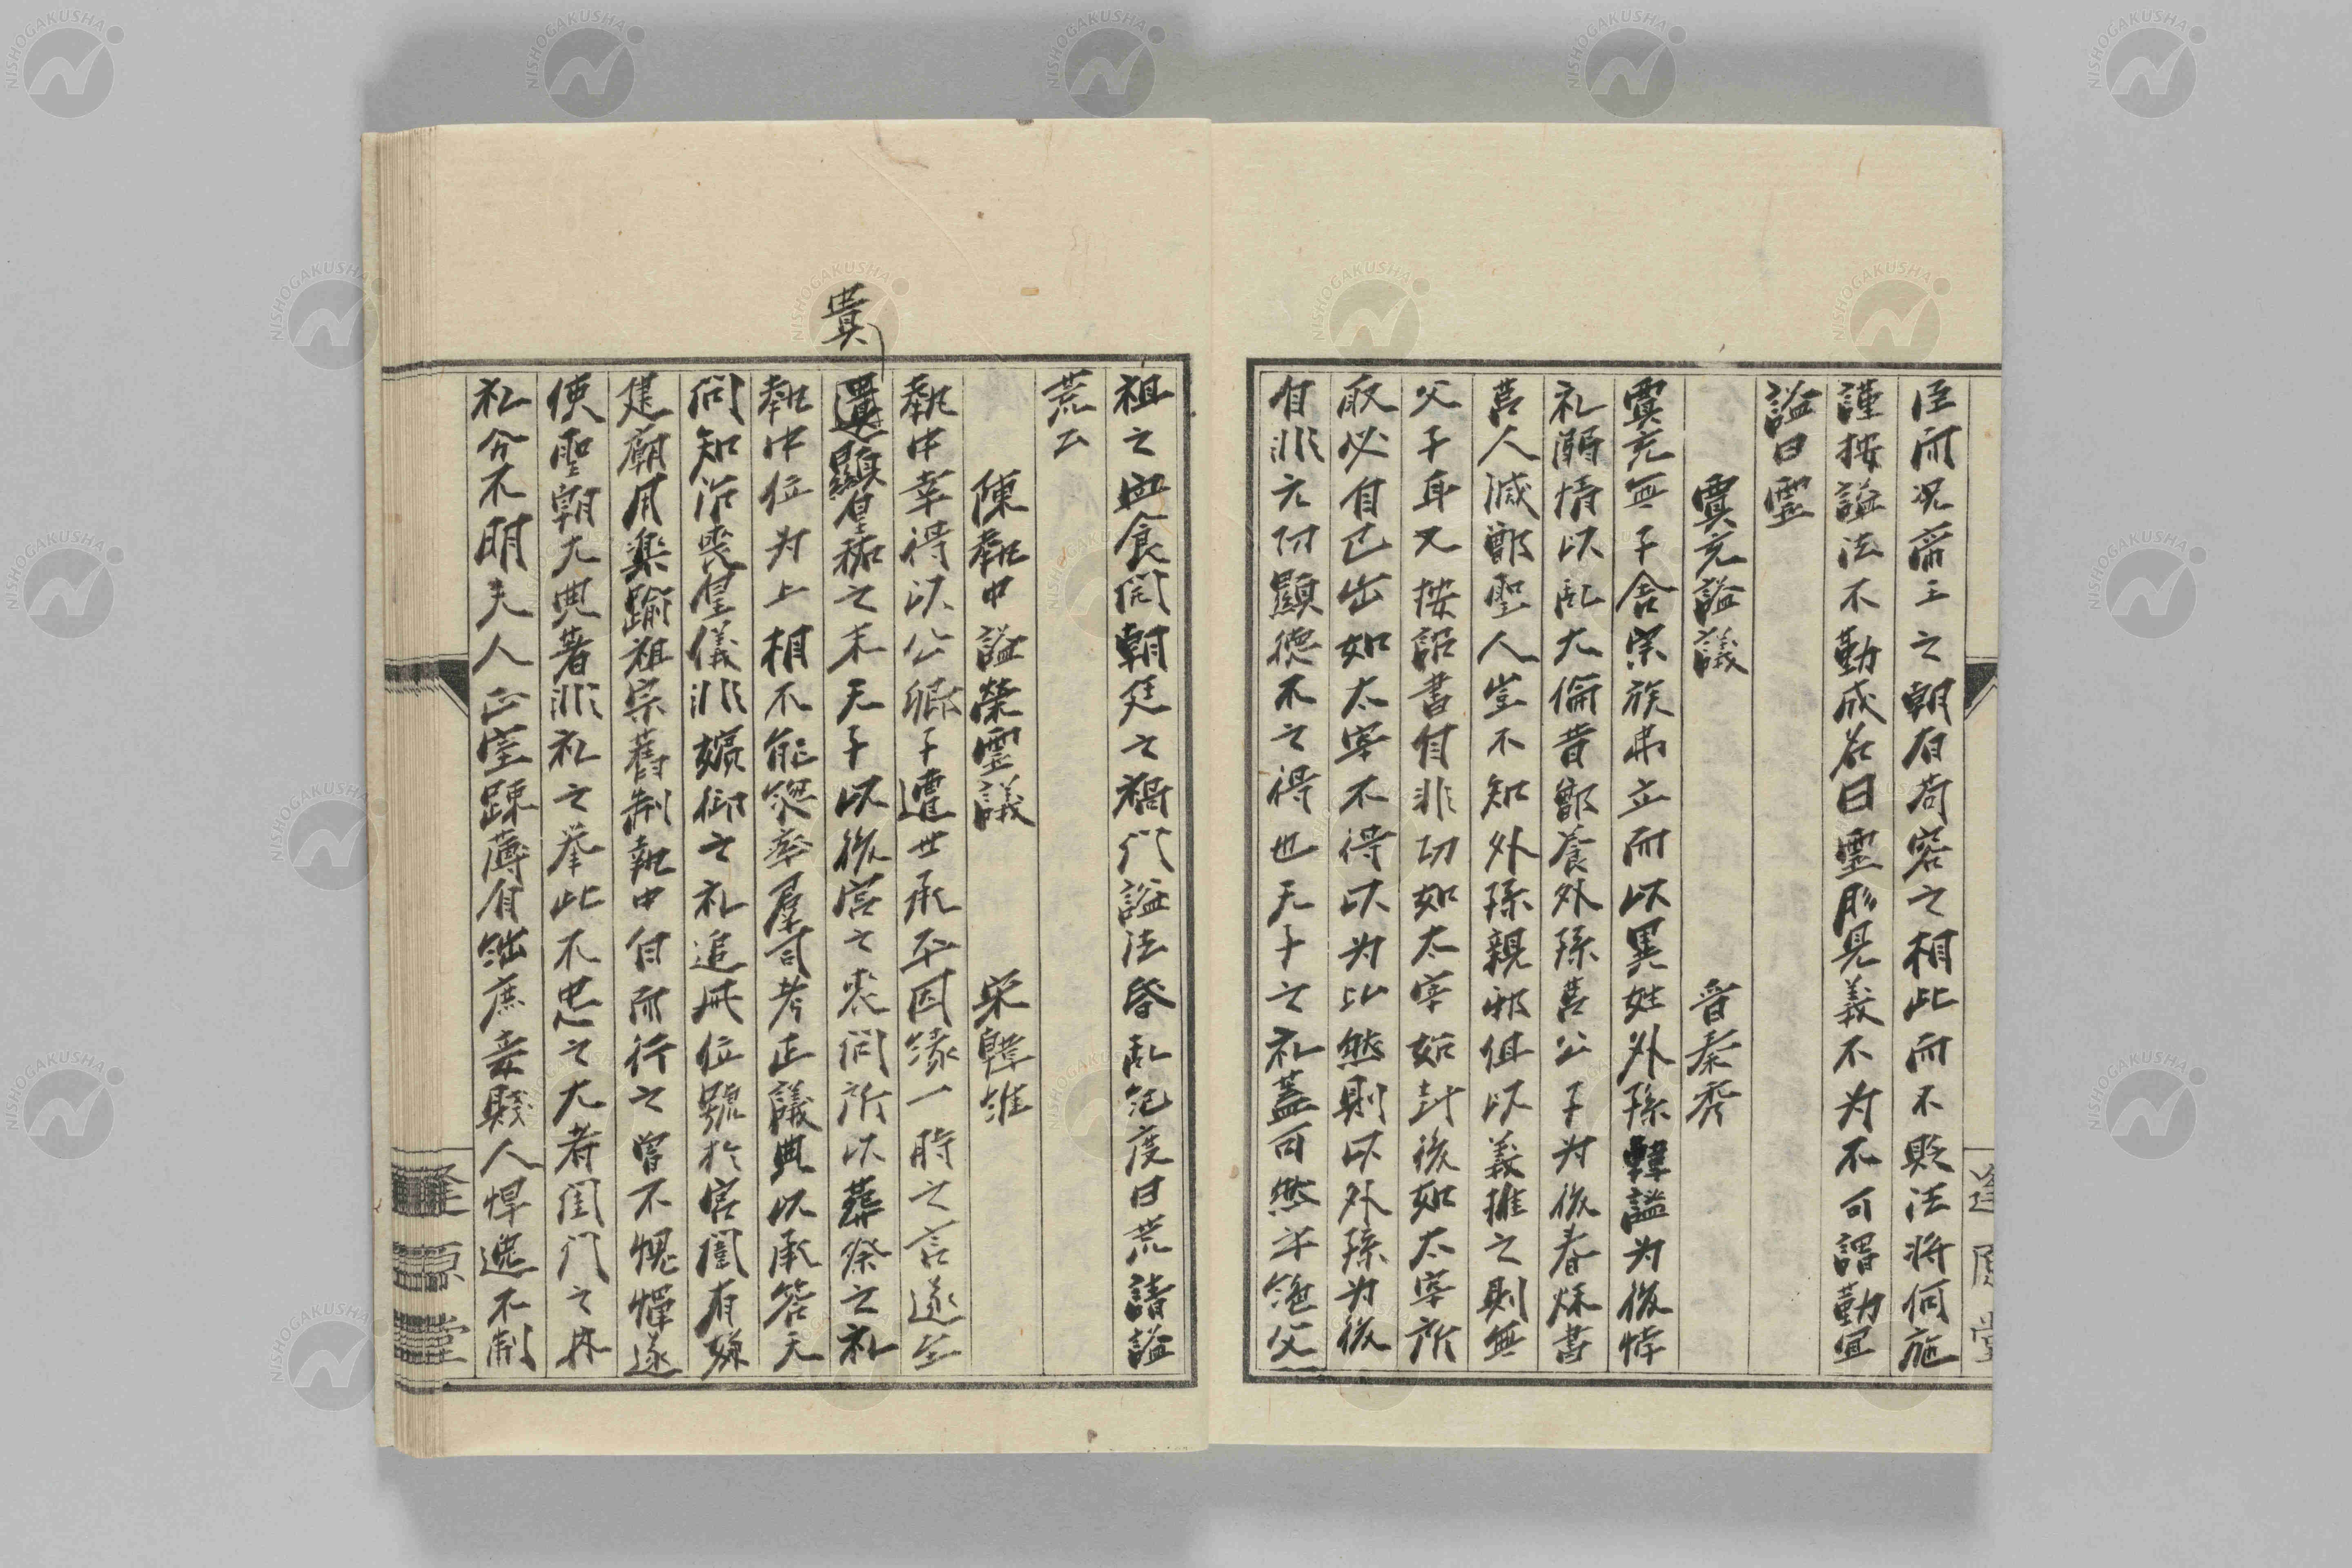 臣而況帝王之朝有苟容之相此而不貶法將何施
謹按謚法不勤成名曰靈彫見義不为不可謂勤宜
謚曰靈
賈充謚議 晉秦秀
賈充無子舍宗族弗立而以異姓外孫韓謐为後悖
礼溺情以乱大倫昔鄫養外孫莒公子为後春秌書
莒人滅鄫聖人豈不知外孫親邪但以義推之則無
父子耳又按詔書自非功如太宰始封後如太宰所
取必自己出如太宰不得以为比然則以外孫为後
自非元功顯德不之得也天子之礼蓋可然乎絶父
祖之血食開朝廷之禍门謚法昏乱纪度曰荒請謚
荒公
陳執中謚榮靈議 宋韓維
執中幸得以公卿子遭世承平因緣一時之言遂至
貴
遺顯皇祐之末天子以後宮之丧问所以葬祭之礼
執中位为上相不能總率羣司考正議典以承答天
问知治喪皇儀非嬪御之礼追冊位號於宮闈有嫌
建廟用樂踰祖宗舊制執中自而行之曾不愧憚遂
使聖朝大典著非礼之举此不忠之大者闺门之内
礼分不明夫人正室踈薄自絀庶妾賤人悍逸不制
逢原堂
NISHOGAKUSHA